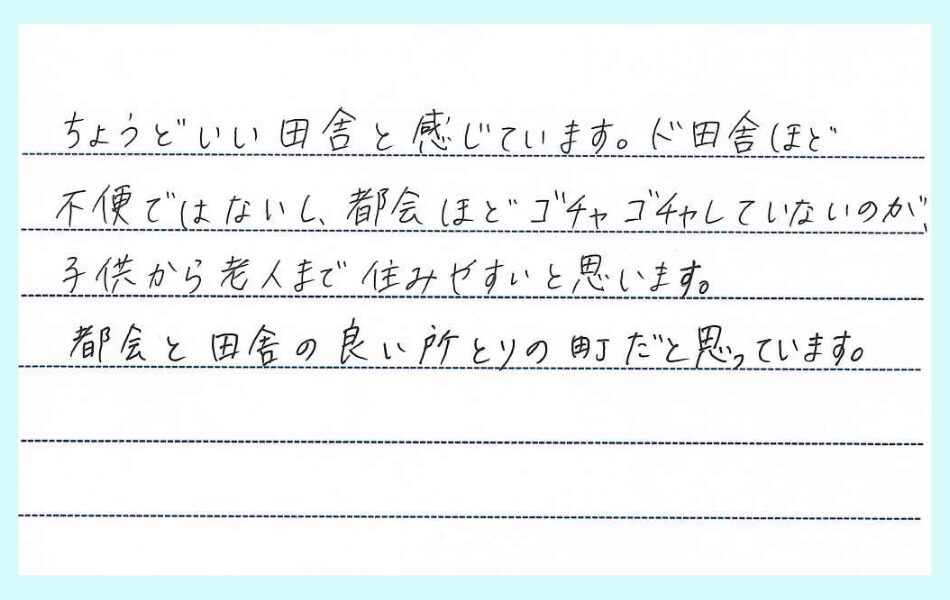 ちょうどいい田舎と感じています。ド田舎ほど
不便ではないし、都会ほどゴチャゴチャしていないのが、
子供から老人まで住みやすいと思います。
都会と田舎の良い所とりの町だと思っています。